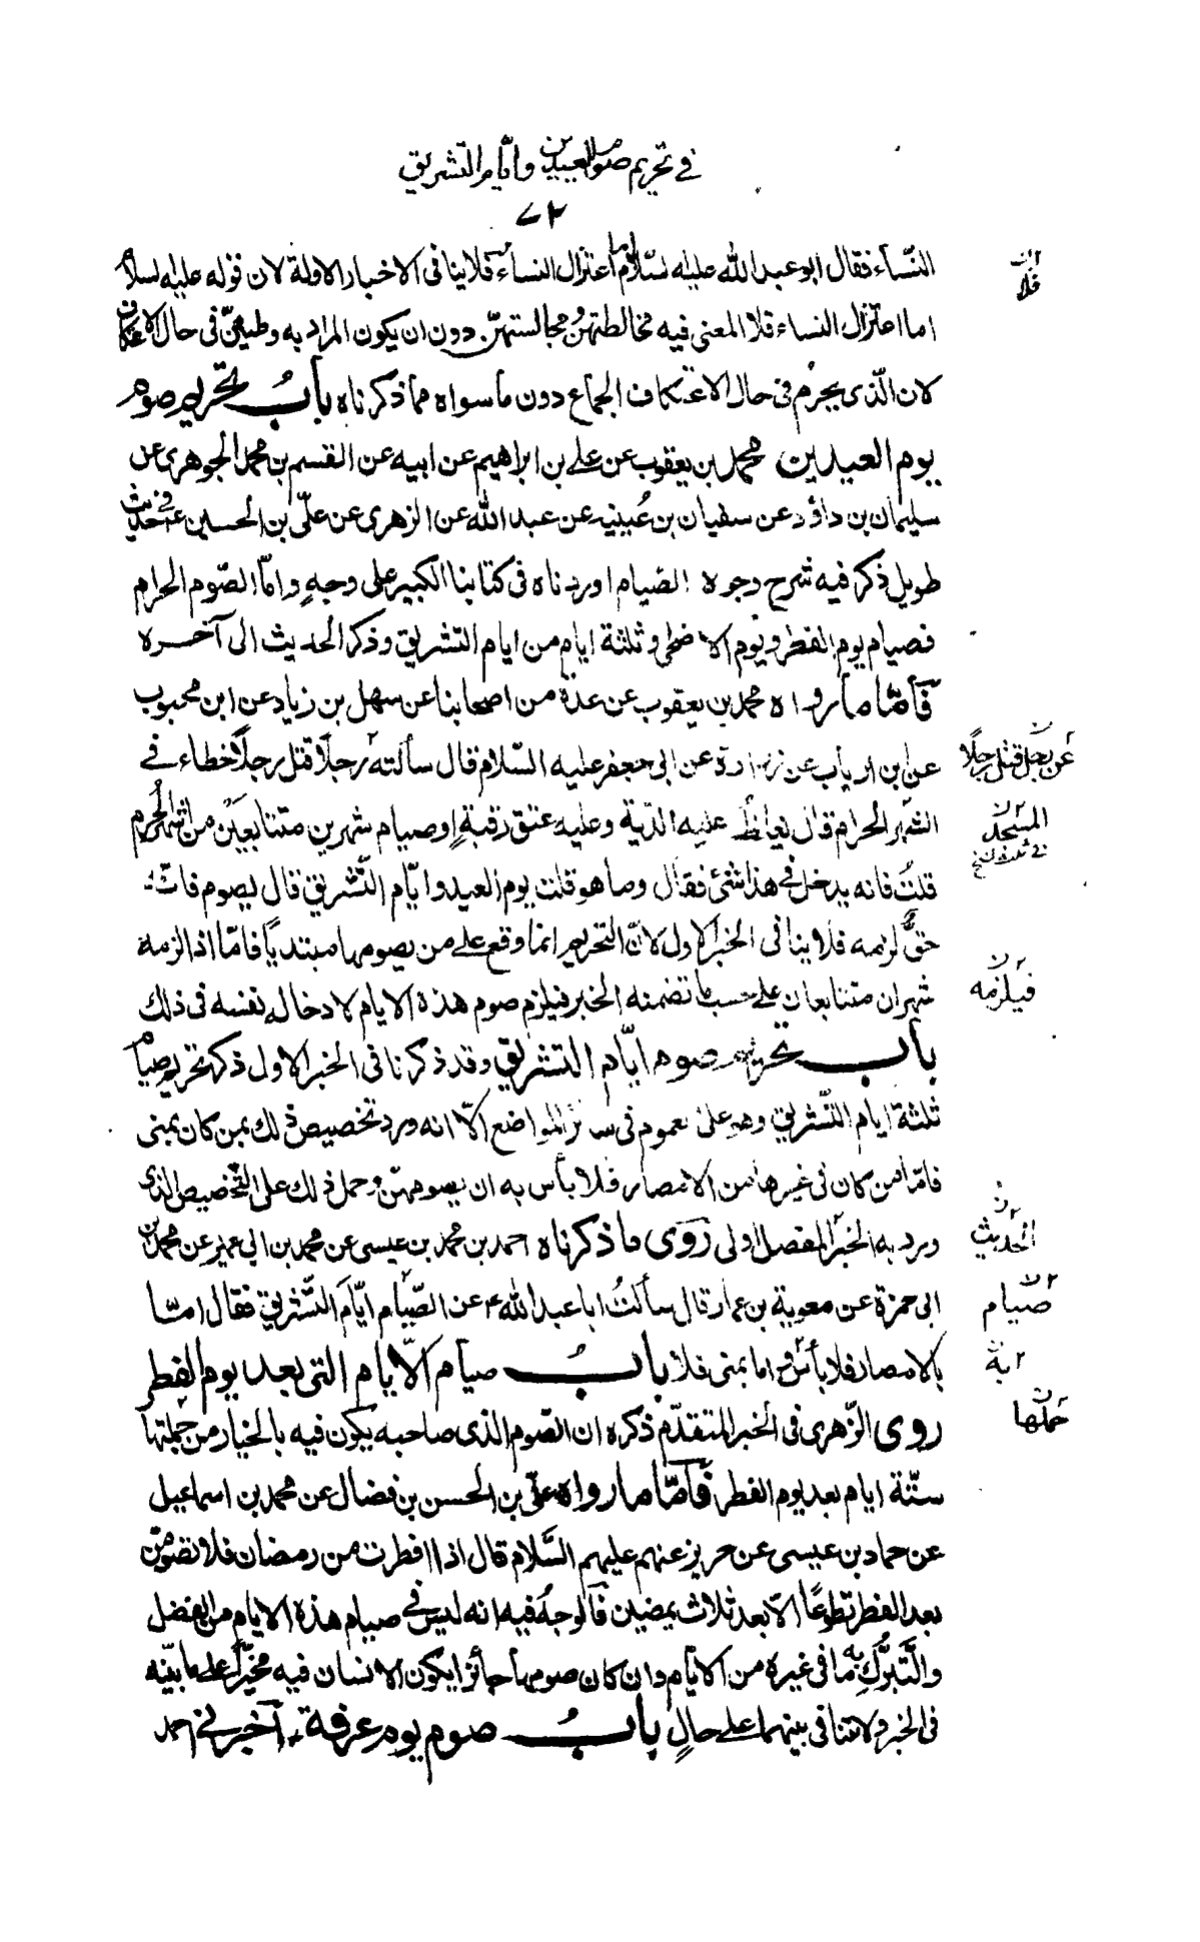 في تحريم صوم العيدين وايّام التّشريق
٧٢
النّساء فقال ابو عبد الله عليه السّلام اما اعتزال النساء فلا ينافى الاخبار الاولة لان قوله عليه السلام
اما اعتزال النساء فلا المعنى فيه مخالطتهنّ ومجالستهنّ دون ان يكون المراد به وطيهنّ فى حال الاعتكاف
لان الّذى يحرم فى حال الاعتكاف الجماع دون ما سواه مما ذكرناه بابُ تحريم صوم
يوم العيدين محمد بن يعقوب عن علي بن ابراهيم عن ابيه عن القسم بن محمد الجوهرى عن
سليمان بن داؤد عن سفيان بن عُيينه عن عبد الله عن الزهرى عن علىّ بن الحسين ع فى حديث
طويل ذكر فيه شرح وجوه الصّيام اوردناه فى كتابنا الكبير على وجهٍ وامّا الصّوم الحرام
فصيام يوم الفطر ويوم الاضحى وثلثة ايام من ايام التشريق وذكر الحديث الى آخره
فأمّا ما رواه محمد بن يعقوب عن عدة من اصحابنا عن سهل بن زياد عن ابن محبوب
عن ابن ارياب عن زرارة عن ابى جعفر عليه السّلام قال سألته رجلًا قتل رجلًا خطاء في
الشهر الحرام قال يغلظ عليه الدّية وعليه عتق رقبةٍ او صيام شهرين متتابعَين من اشهر الحُرم
قلتُ فانه يدخل في هذا شئ فقال وما هو قلت يوم العيد وايّام التّشريق قال يصوم فانّه
حقٌّ لزمه فلا ينافى الخبر الاول لانّ التحريم انما وقع على من يصومها مبتديًا فامّا اذا لزمه
شهران متتابعان على حسب ما تضمنه الخبر فيلزم صوم هذه الايام لادخاله نفسه فى ذلك
باب تحريم صوم ايّام التشريق وقد ذكرنا فى الخبر الاول ذكر تحريم صيام
ثلثة ايام التّشريق وهو على عموم فى سائر المواضع الّا انه ورد تخصيص ذلك بمن كان بمنى
فامّا من كان فى غيرها من الامصار فلا بأس به ان يصومهنّ وحمل ذلك على التّخصيص الذى
ورد به الخبر المفصل اولى رَوَى ما ذكرناه احمد بن محمد بن عيسى عن محمد بن ابي عمير عن محمد بن
ابى حمزة عن معوية بن عمار قال سألتُ ابا عبد الله ع عن الصّيام ايّامَ التّشريق فقال امّا
بالامصار فلا بأس واما بمنى فلا بابُ صيام الايّام التى بعد يوم الفطر
روى الزّهرى فى الخبر المتقدّم ذكره ان الصّوم الذى صاحبه يكون فيه بالخيار من جملتها
ستّة ايام بعد يوم الفطر فأمّا ما رواه علىّ بن الحسن بن فضال عن محمد بن اسماعيل
عن حماد بن عيسى عن حريز عنهم عليهم السّلام قال اذا افطرت من رمضان فلا تصومنّ
بعد الفطر تطوعًا الّا بعد ثلاث يمضين فالوجهُ فيه انه ليس في صيام هذه الايام من الفضل
والتّبرُّكِ به ما فى غيره من الايّام وان كان صومها جائزا يكون الانسان فيه مخيّرًا على ما بيّنه
فى الخبر ولا تنافى بينهما على حالٍ بابُ صوم يوم عرفة اخبرني احمد
فلا
عن رجل قتل رجلًا
المسجد
فيلزمه
الحديث
صيام
به
جملتها